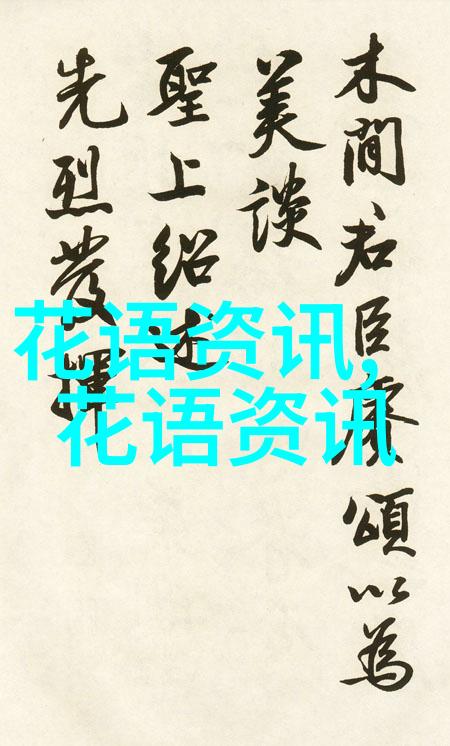 木間君臣賡頌以為
美談
聖上紹述
先烈發揮
花语资讯,
花语资讯